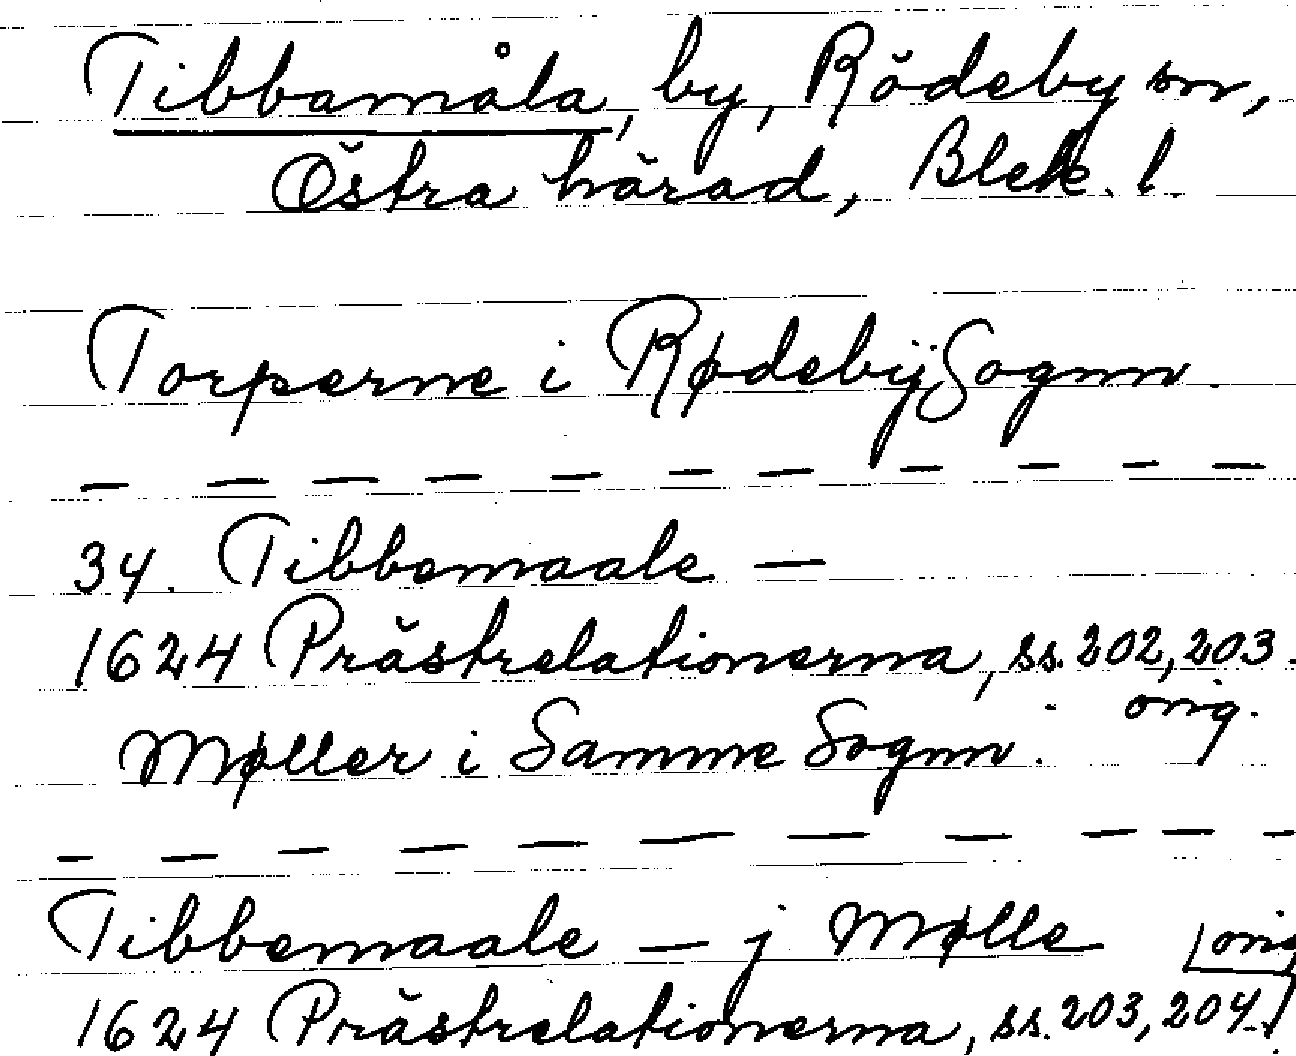 Tibbamåla, by, Rödeby sn,
Östra härad, Blek. l.
Torperne i Rødebÿ Sognn.
— — — — — — — — — — —
34. Tibbemaale —
1624 Prästrelationerna, ss. 202, 203.
orig.
Møller i Samme Sognn.
— — — — — — — — — —
Tibbemaale — j Mølle
orig
1624 Prästrelationerna, ss. 203, 204.